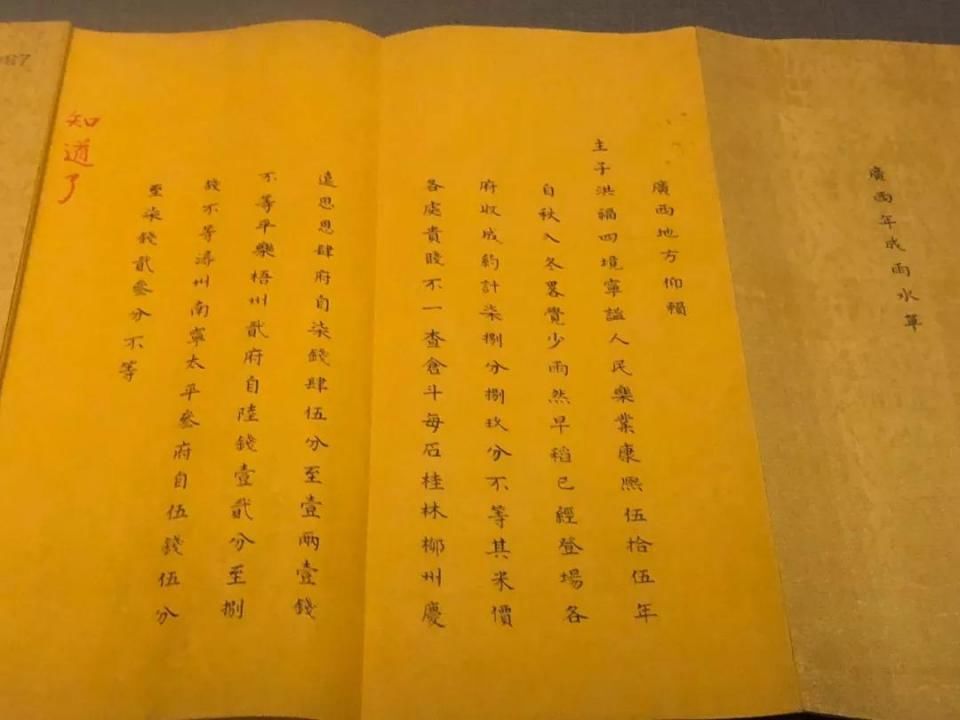 廣西年成雨水單
廣西地方仰賴
主子洪福四境寧謐人民樂業康熙伍拾伍年
自秋入冬畧覺少雨然早稻已經登場各
府收成約計柒捌分捌玖分不等其米價
各處貴賤不一查倉斗每石桂林柳州慶
遠思恩肆府自柒錢肆伍分至壹兩壹錢
不等平樂梧州貳府自陸錢壹貳分至捌
錢不等潯州南寧太平叁府自伍錢伍分
至柒錢貳叁分不等
知道了